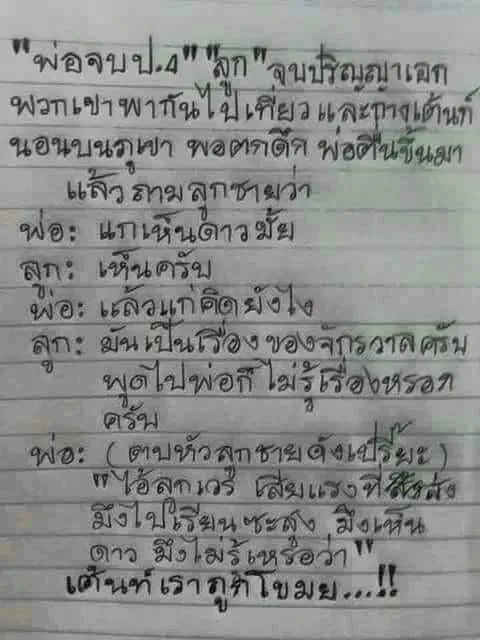 "พ่อจบป.4" "ลูก" จบปริญญาเอก
พวกเขาพากันไปเที่ยว และกางเต้นท์
นอนบนภูเขา พอตกดึก พ่อตื่นขึ้นมา
แล้วถามลูกชายว่า
พ่อ: แกเห็นดาวมั้ย
ลูก: เห็นครับ
พ่อ: แล้วแกคิดยังไง
ลูก: มันเป็นเรื่องของจักรวาลครับ
พูดไปพ่อก็ไม่รู้เรื่องหรอก
ครับ
พ่อ: (ตบหัวลูกชายดังเปรี๊ยะ)
"ไอ้ลูกเวร เสียแรงที่ส่ง
มึงไปเรียนซะสูง มึงเห็น
ดาว มึงไม่รู้เหรอว่า"
เต้นท์เราถูกขโมย...!!